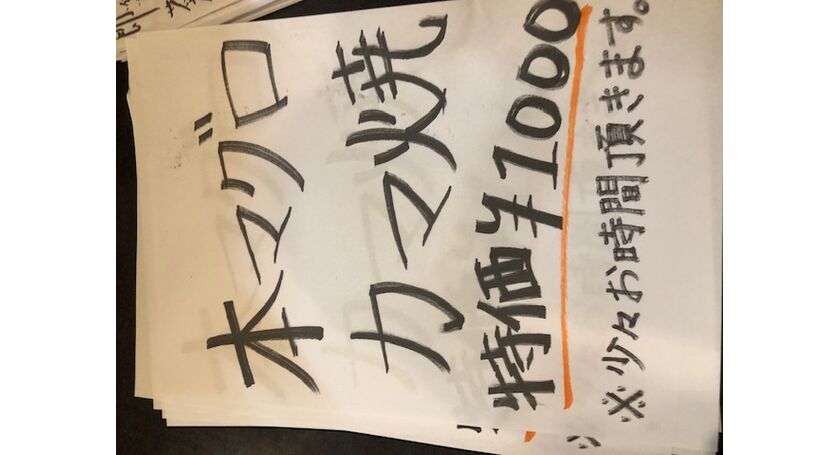 本マグロ
カマ焼
特価¥1000
※少々お時間頂きます。